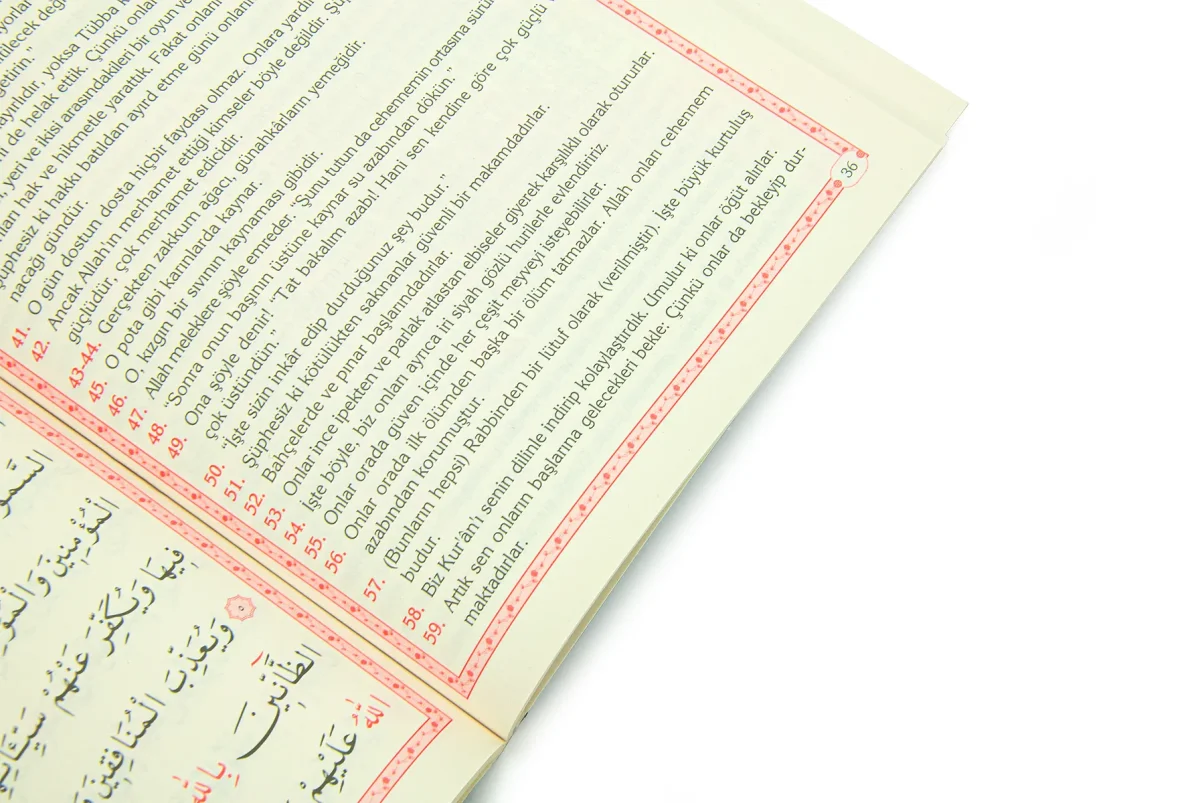 tilecek değ
getirin."
ayırlıdır, yoksa Tübba K
ni de helak ettik. Çünkü onlar
, yeri ve ikisi arasındakileri bir oyun v
ları hak ve hikmetle yarattık. Fakat onları
Şüphesiz ki hakkı batıldan ayırd etme günü onları
nacağı gündür.
41. O gün dostun dosta hiçbir faydası olmaz. Onlara yardı
42. Ancak Allah'ın merhamet ettiği kimseler böyle değildir. Şüp
güçlüdür, çok merhamet edicidir.
43-44. Gerçekten zakkum ağacı, günahkârların yemeğidir.
45. O pota gibi karınlarda kaynar.
46. O, kızgın bir sıvının kaynaması gibidir.
47. Allah meleklere şöyle emreder. "Şunu tutun da cehennemin ortasına sürü
48. "Sonra onun başının üstüne kaynar su azabından dökün."
49. Ona şöyle denir! "Tat bakalım azabı! Hani sen kendine göre çok güçlü
çok üstündün."
50. "İşte sizin inkâr edip durduğunuz şey budur."
51. Şüphesiz ki kötülükten sakınanlar güvenli bir makamdadırlar.
52. Bahçelerde ve pınar başlarındadırlar.
53. Onlar ince ipekten ve parlak atlastan elbiseler giyerek karşılıklı olarak otururlar.
54. İşte böyle, biz onları ayrıca iri siyah gözlü hurilerle evlendiririz.
55. Onlar orada güven içinde her çeşit meyveyi isteyebilirler.
56. Onlar orada ilk ölümden başka bir ölüm tatmazlar. Allah onları cehennem
azabından korumuştur.
57. (Bunların hepsi) Rabbinden bir lütuf olarak (verilmiştir). İşte büyük kurtuluş
budur.
58. Biz Kur'ân'ı senin dilinle indirip kolaylaştırdık. Umulur ki onlar öğüt alırlar.
59. Artık sen onların başlarına gelecekleri bekle: Çünkü onlar da bekleyip dur-
maktadırlar.
36
السَّمٰو
الْمُؤْمِنِينَ وَالْمُؤْمِ
فِيهَا وَيُكَفِّرَ عَنْهُمْ سَيِّـَٔاتِهِ
٥ وَيُعَذِّبَ الْمُنَافِقِينَ وَ
الظَّٓانِّينَ بِاللّٰهِ
اللّٰهُ عَلَيْهِمْ